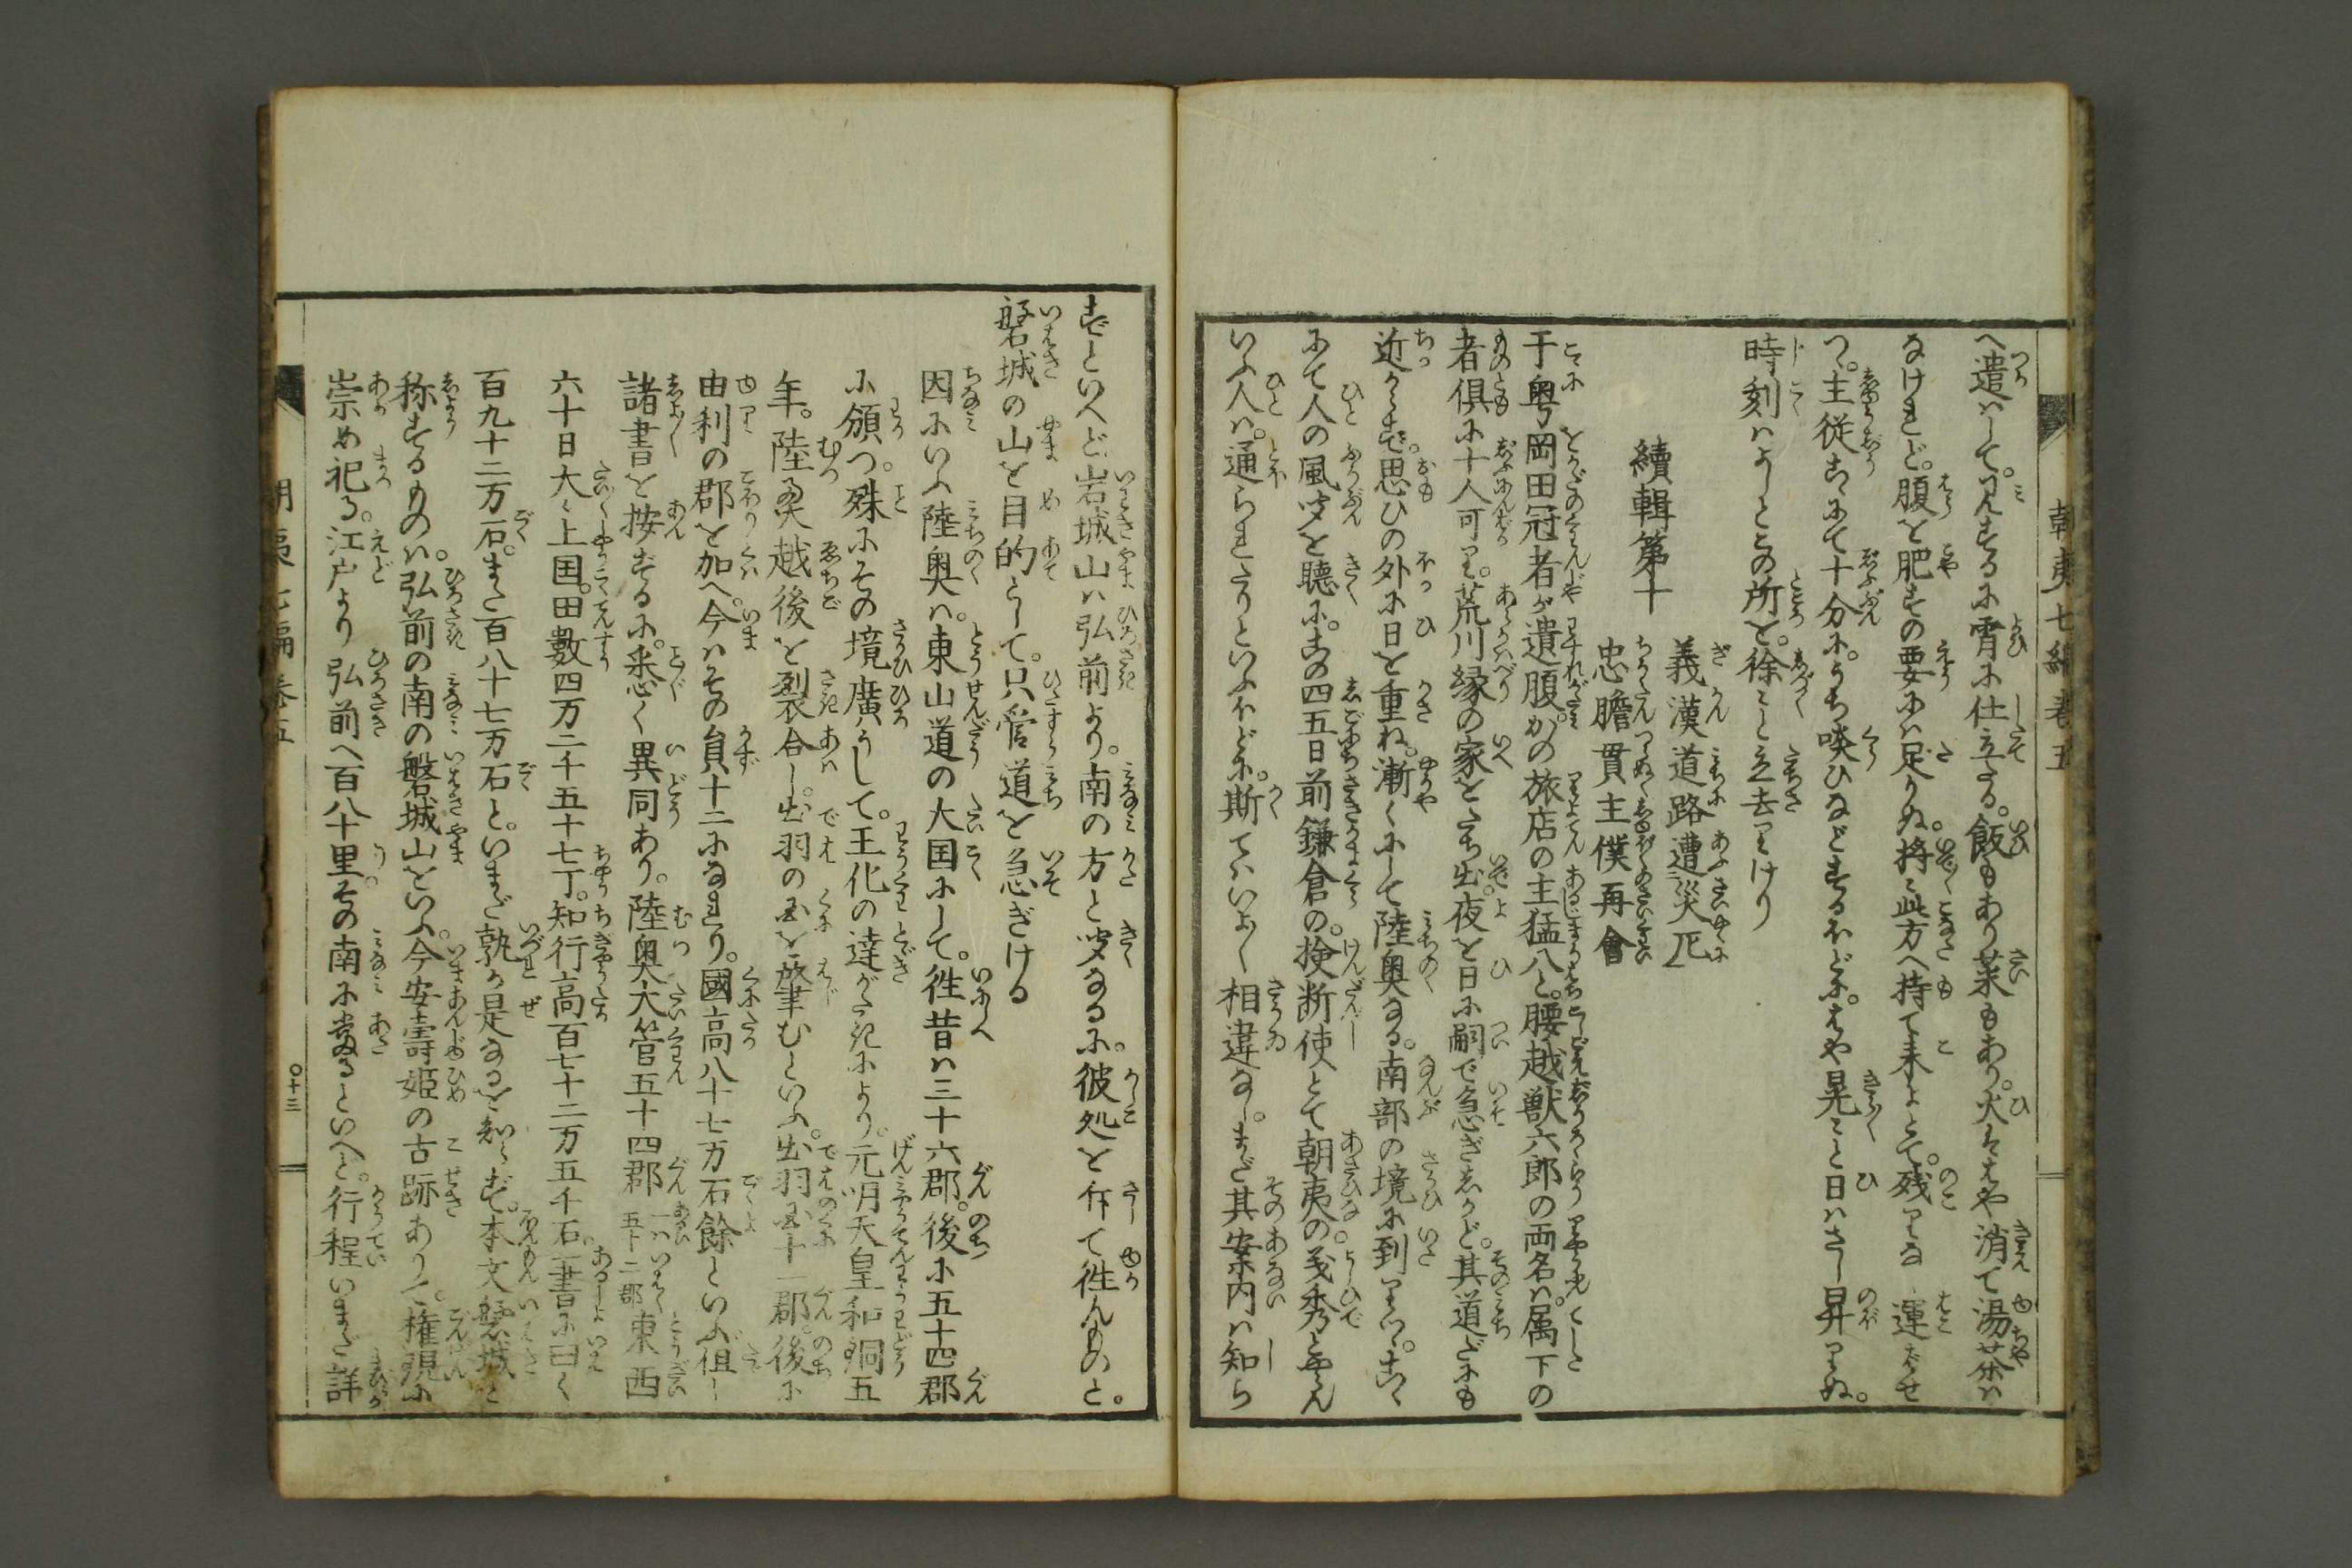 朝夷七編巻五
へ遣はして。見するに宵に仕立たる。飯もあり菜もあり。火はや消て湯茶は
なけれど。腹を肥すの要には足りぬ。将〻此方へ持て来よとて。残りな 運ばせ
つ。主従こゝにて十分に。うち啖ひなどするほどに。はや晃〻と日はさし昇りぬ。
時刻はよしとこの所を。徐〻と立去りけり
續輯第十
義漢道路遭災厄
忠膽貫主僕再會
于奥岡田冠者が遺腹。かの旅店の主猛八と。腰越獣六郎の両名は。属下の
者俱に十人可り。荒川縁の家をたち出。夜を日に嗣で急ぎしかど。其道だにも
近からず。思ひの外に日を重ね。漸〱にして陸奥なる。南部の境に到りつ。こゝ
にて人の風聞を聴に。この四五日前鎌倉の。検断使とて朝夷の。義秀とやらん
いふ人は。通られたりといふほどに。斯てはいよ〱相違なし。まだ其案内は知ら
ずといへど。岩城山は弘前より。南の方と聞なるに。彼処を斥て徃んものと。
磐城の山を目的として。只管道を急ぎける
因にいふ陸奥は。東山道の大国にして。徃昔は三十六郡。後に五十四郡
に頒つ。殊にその境廣うして。王化の達がたきにより。元明天皇和銅五
年。陸奥越後を裂合し。出羽の国を肇むといふ。出羽国十一郡後に
由利の郡を加へ。今はその員十二になれり。國高八十七万石餘といふ但し
諸書を按ずるに。悉く異同あり。陸奥大管五十四郡一ハ五十二郡東西
六十日大〻上国。田數四万二千五十七丁。知行高百七十二万五千石。一書に曰く
百九十二万石。また百八十七万石と。いまだ孰か是なるを知らず。本文磐城と
称するものは。弘前の南の磐城山をいふ。今安壽姫の古跡ありて。権現に
崇め祀る。江戸より弘前へ百八十里。その南に當るといへど。行程いまだ詳
朝夷七編巻五
〇十三